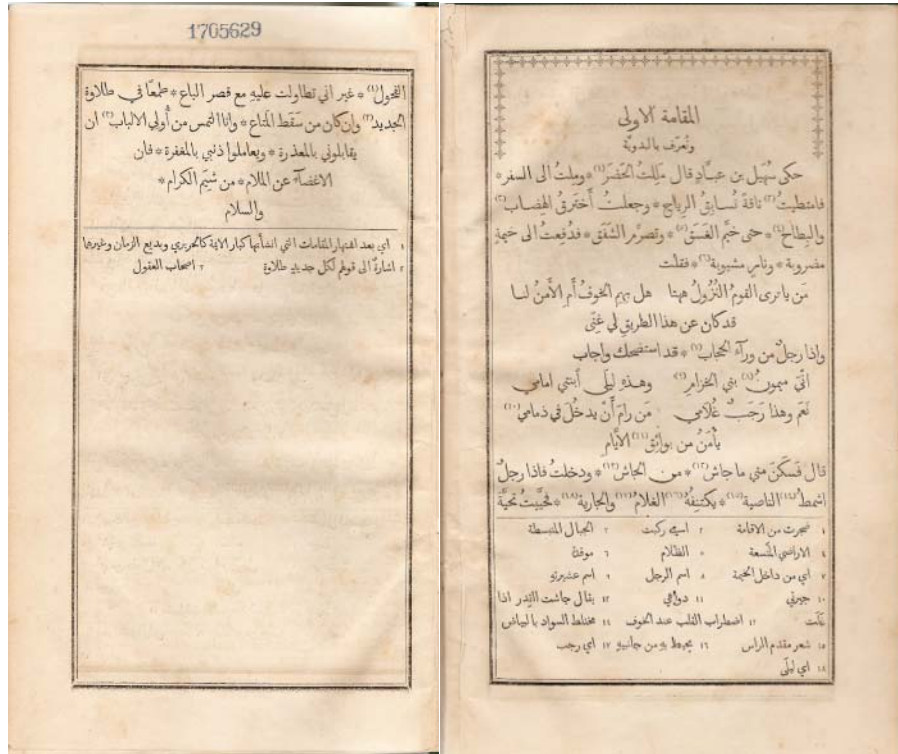 1705629
الفحول(١) * غير اني تطاولت عليهِ مع قصر الباع * طمعًا في طلاوة
الجديد(٢) وان كان من سَقَط المَتاع * وانا التمس من أُولي الالباب(٣) ان
يقابلوني بالمعذرة * ويعاملوا ذنبي بالمغفرة * فان
الاغضآءَ عن الملام * من شِيَم الكرام *
والسلام
١ اي بعد اشتهار المقامات التي انشأَتها كبار الايمة كالحريري وبديع الزمان وغيرهما
٢ اشارةٌ الى قولهم لكل جديدٍ طلاوة ٣ اصحاب العقول
المقامة الاولى
وتُعرَف بالبدويَّة
حكى سُهَيل بن عبَّادٍ قال مَلِلتُ الحَضَرَ(١) * ومِلتُ الى السفر *
فامتطيتُ(٢) ناقةً تُسابِقُ الرِياح * وجعلتُ أَخترِقُ الهِضاب(٣)
والبِطاح(٤) * حتى خيَّم الغَسَق(٥) * وتصرَّم الشَفَق * فدُفِعتُ الى خيمةٍ
مضروبة * ونارٍ مشبوبة(٦) * فقلت
مَن يا تُرى القومُ النُزُولُ ههنا هل بهِمِ الخوفُ أَمِ الأَمنُ لنا
قد كان عن هذا الطريقِ لي غِنَى
واذا رجلٌ من ورآءِ الحجاب(٧) * قد استضحك واجاب
انّي ميمونُ(٨) بني الخزامِ(٩) وهذهِ ليلَى ابنتي امامي
نَعَم وهذا رَجَبٌ غُلامي مَن رامَ أَنْ يدخُلَ في ذمامي(١٠)
يأمَنُ من بوائِقِ(١١) الأيَّامِ
قال فسَكَنَ مني ما جاش(١٢) * من الجاش(١٣) * ودخلتُ فاذا رجلٌ
اشمطُ(١٤) الناصية(١٥) * يكتنِفُهُ(١٦) الغلامُ(١٧) والجارية(١٨) * فحيَّيتُ تحيَّةَ
١ ضجرت من الاقامة ٢ اي ركبت ٣ الجبال المنبسطة
٤ الاراضي المتَّسعة ٥ الظلام ٦ موقدة
٧ اي من داخل الخيمة ٨ اسم الرجل ٩ اسم عشيرتهِ
١٠ جيرتي ١١ دواهي ١٢ يقال جاشت القِدر اذا
غلَت ١٣ اضطراب القلب عند الخوف ١٤ مختلط السواد بالبياض
١٥ شعر مقدم الراس ١٦ يحيط بهِ من جانبيهِ ١٧ اي رجب
١٨ اي ليلَى